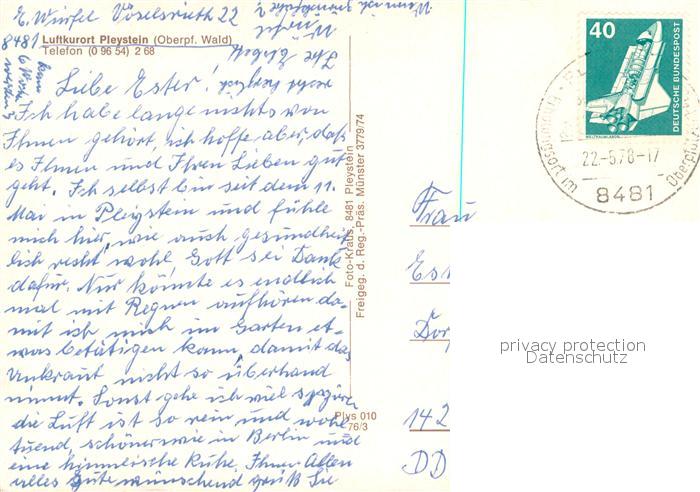 E. Würfel Vöselsrieth 22
8481
Luftkurort Pleystein (Oberpf. Wald)
Telefon (0 96 54) 2 68
Liebe Ester!
Ich habe lange nichts von
Ihnen gehört, ich hoffe aber, daß
es Ihnen und Ihren Lieben gut
geht. Ich selbst bin seit dem 11.
Mai in Pleystein und fühle
mich hier, wie auch gesundheit
lich recht wohl Gott sei Dank
dafür. Nur könnte es endlich
mal mit Regnen aufhören da-
mit ich mich im Garten et-
was betätigen kann, damit das
Unkraut nicht so überhand
nimmt. Sonst gehe ich viel spazieren
die Luft ist so rein und wohl
tuend, schöner wie in Berlin und
eine himmlische Ruhe. Ihnen Allen
alles Gute wünschend grüßt Sie
Foto-Kraus, 8481 Pleystein
Freigeg. d. Reg.-Präs. Münster 3779/74
Plys 010
76/3
40
DEUTSCHE BUNDESPOST
WELTRAUMLABOR
22.-5.78-17
8481
Frau
Es
Dor
142
DD
privacy protection
Datenschutz